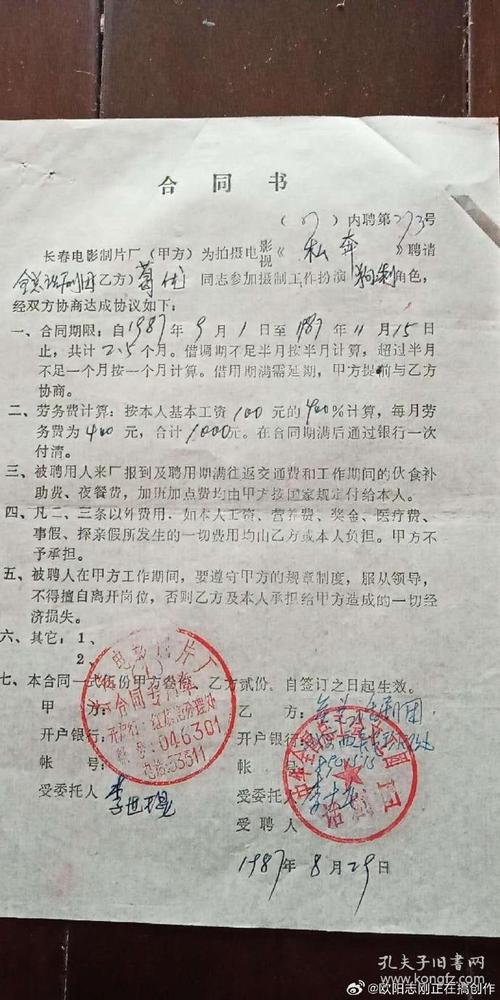 合同书
(87)内聘第273号
长春电影制片厂（甲方）为拍摄电影视《私奔》聘请
全总话剧团乙方）葛优同志参加摄制工作扮演角色，
经双方协商达成协议如下：
一、合同期限：自1987年9月1日至1987年11月15日
止，共计2.5个月。借调期不足半月按半月计算，超过半月
不足一个月按一个月计算。借用期满需延期，甲方提前与乙方
协商。
二、劳务费计算：按本人基本工资100元的400%计算，每月劳
务费为400元，合计1000元。在合同期满后通过银行一次
付清。
三、被聘用人来厂报到及聘用期满往返交通费和工作期间的伙食补
助费、夜餐费，加班加点费均由甲方按国家规定付给本人。
四、凡二、三条以外费用，如本人工资、营养费、奖金、医疗费、
事假、探亲假所发生的一切费用均由乙方或本人负担。甲方不
予承担。
五、被聘人在甲方工作期间，要遵守甲方的规章制度，服从领导，
不得擅自离开岗位，否则乙方及本人承担给甲方造成的一切经
济损失。
六、其它：1、
2、
七、本合同一式伍份甲方叁份，乙方贰份，自签订之日起生效。
甲方：
开户银行：
帐号：
受委托人
电影制片厂
合同专用章
开户行：红旗街办理处
帐号：046301
电话：53511
李世
乙方：全总话剧团
开户银行：
帐号：
受委托人
受聘人
中华全国总工会
话剧团
1987年8月29日
孔夫子旧书网
kongfz.com
@欧阳志刚正在搞创作